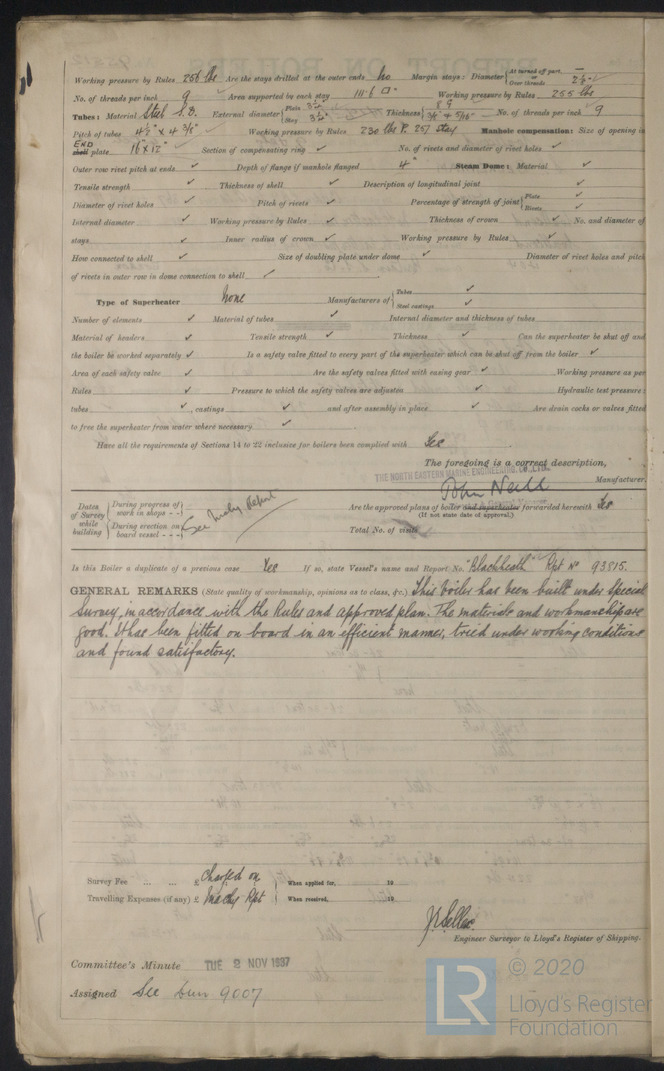 Working pressure by Rules 256 lbs Are the stays drilled at the outer ends No Margin stays: Diameter { At turned off part, or Over threads 2½"
No. of threads per inch 9 Area supported by each stay 111.6 □" Working pressure by Rules 255 lbs
Tubes: Material Steel S.D. External diameter { Plate 3¼" Stay 3¼" Thickness { 8 G 3/8" & 5/16" No. of threads per inch 9
Pitch of tubes 4½" x 4 3/8" Working pressure by Rules 230 lbs P. 257 stay Manhole compensation: Size of opening in
END shell plate 16" x 12" Section of compensating ring ✓ No. of rivets and diameter of rivet holes ✓
Outer row rivet pitch at ends ✓ Depth of flange if manhole flanged 4" Steam Dome: Material ✓
Tensile strength ✓ Thickness of shell ✓ Description of longitudinal joint ✓
Diameter of rivet holes ✓ Pitch of rivets ✓ Percentage of strength of joint { Plate ✓ Rivets ✓
Internal diameter ✓ Working pressure by Rules ✓ Thickness of crown ✓ No. and diameter of
stays ✓ Inner radius of crown ✓ Working pressure by Rules ✓
How connected to shell ✓ Size of doubling plate under dome ✓ Diameter of rivet holes and pitch
of rivets in outer row in dome connection to shell ✓
Type of Superheater None Manufacturers of { Tubes ✓ Steel castings ✓
Number of elements ✓ Material of tubes ✓ Internal diameter and thickness of tubes
Material of headers ✓ Tensile strength ✓ Thickness ✓ Can the superheater be shut off and
the boiler be worked separately ✓ Is a safety valve fitted to every part of the superheater which can be shut off from the boiler ✓
Area of each safety valve ✓ Are the safety valves fitted with easing gear ✓ Working pressure as per
Rules ✓ Pressure to which the safety valves are adjusted ✓ Hydraulic test pressure:
tubes ✓, castings ✓ and after assembly in place ✓ Are drain cocks or valves fitted
to free the superheater from water where necessary ✓
Have all the requirements of Sections 14 to 22 inclusive for boilers been complied with Yes
The foregoing is a correct description,
THE NORTH EASTERN MARINE ENGINEERING CO., LTD.
John Neill Manufacturer.
Dates of Survey while building { During progress of work in shops - - } { During erection on board vessel - - - } See Mchy Report
Are the approved plans of boiler and superheater forwarded herewith Yes
(If not state date of approval.)
Total No. of visits
Is this Boiler a duplicate of a previous case Yes If so, state Vessel's name and Report No. "Blackheath" Rpt No 93815.
GENERAL REMARKS (State quality of workmanship, opinions as to class, &c.) This boiler has been built under Special
Survey, in accordance with the Rules and approved plan. The materials and workmanship are
good. It has been fitted on board in an efficient manner, tried under working conditions
and found satisfactory.
Survey Fee ... ... £ Charged on When applied for, 19
Travelling Expenses (if any) £ Machy Rpt When received, 19
Engineer Surveyor to Lloyd's Register of Shipping.
Committee's Minute TUE 2 NOV 1937
Assigned See 9007
LR © 2020
Lloyd's Register
Foundation